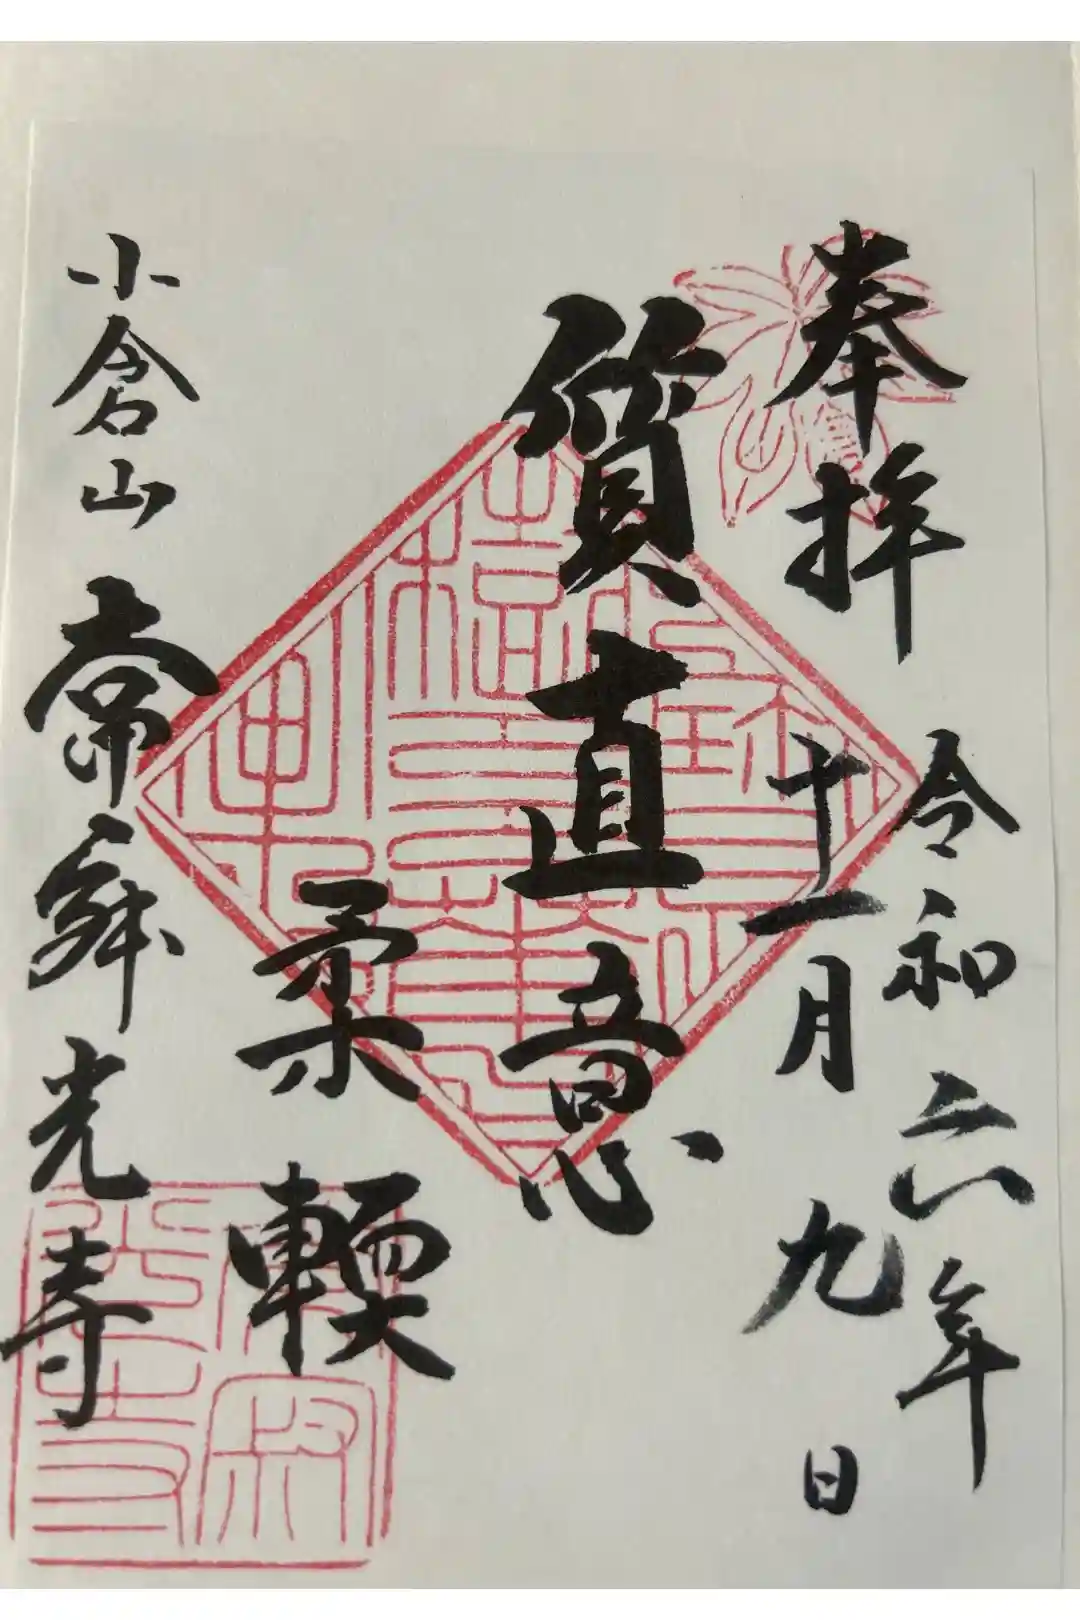 奉拝
令和六年
十一月九日
質直意
柔輭
小倉山 常寂光寺